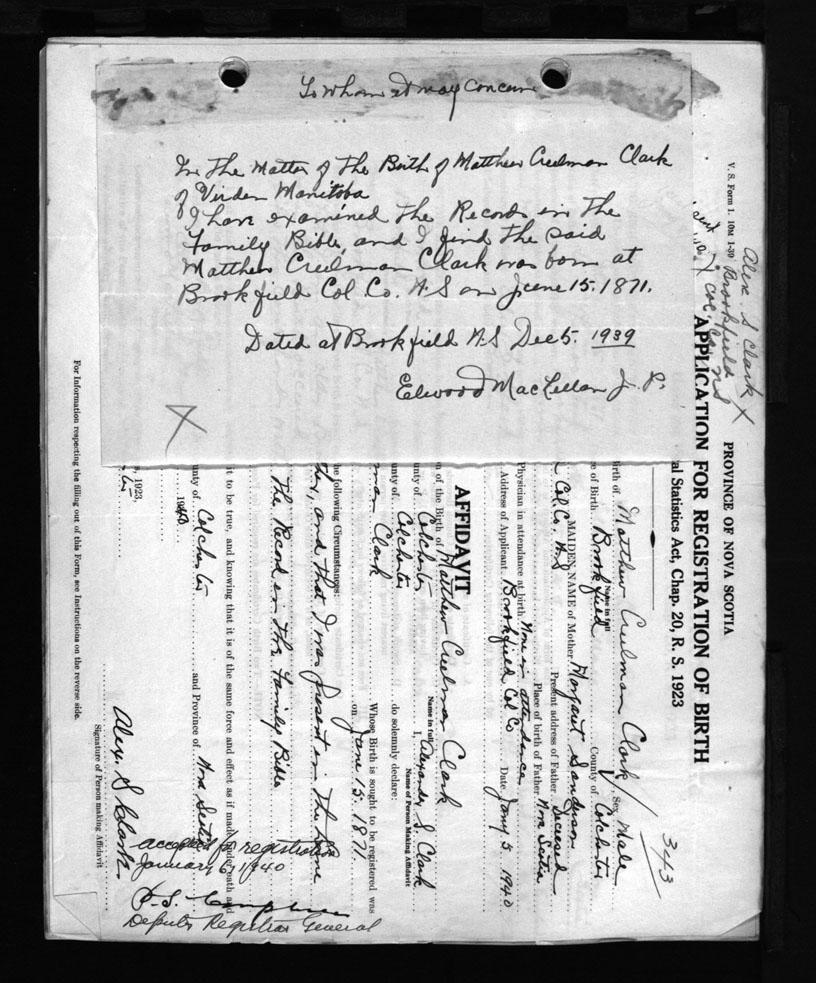 To Whom it may Concern
In the Matter of the Birth of Matthew Creelman Clark
of Virden Manitoba
I have examined the Records in the
Family Bible, and I find the said
Matthew Creelman Clark was born at
Brookfield Col Co. N.S on June 15. 1871.
Dated at Brookfield N.S Dec 5. 1939
Elwood MacLellan J. P.
X
Alex S Clark X
Brookfield
Col. Co. NS
V. S. Form 1. 10M 1-39
PROVINCE OF NOVA SCOTIA
APPLICATION FOR REGISTRATION OF BIRTH
al Statistics Act, Chap. 20, R. S. 1923
3413
Birth of Matthew Creelman Clark Sex Male
Name in full
e of Birth Brookfield County of Colchester
MAIDEN NAME of Mother Margaret Sanderson
Present address of Father Deceased
Col. Co. N.S Place of birth of Father Nova Scotia
Physician in attendance at birth None in attendance
Address of Applicant Brookfield Col Co Date Jany 5 1940
AFFIDAVIT
n of the Birth of Matthew Creelman Clark
Name in full
unty of Colchester I, Alexander S Clark
Name of Person Making Affidavit
unty of Colchester do solemnly declare:
man Clark Whose Birth is sought to be registered was
on June 15. 1871
he following Circumstances:
ther, and that I was present in the home
The Record in the Family Bible
it to be true, and knowing that it is of the same force and effect as if made under oath and
unty of Colchester and Province of Nova Scotia
1940
, 1923,
Alex. S Clark
Signature of Person making Affidavit
For Information respecting the filling out of this Form, see Instructions on the reverse side.
accepted for registration
January 6 1940
Deputy Registrar General